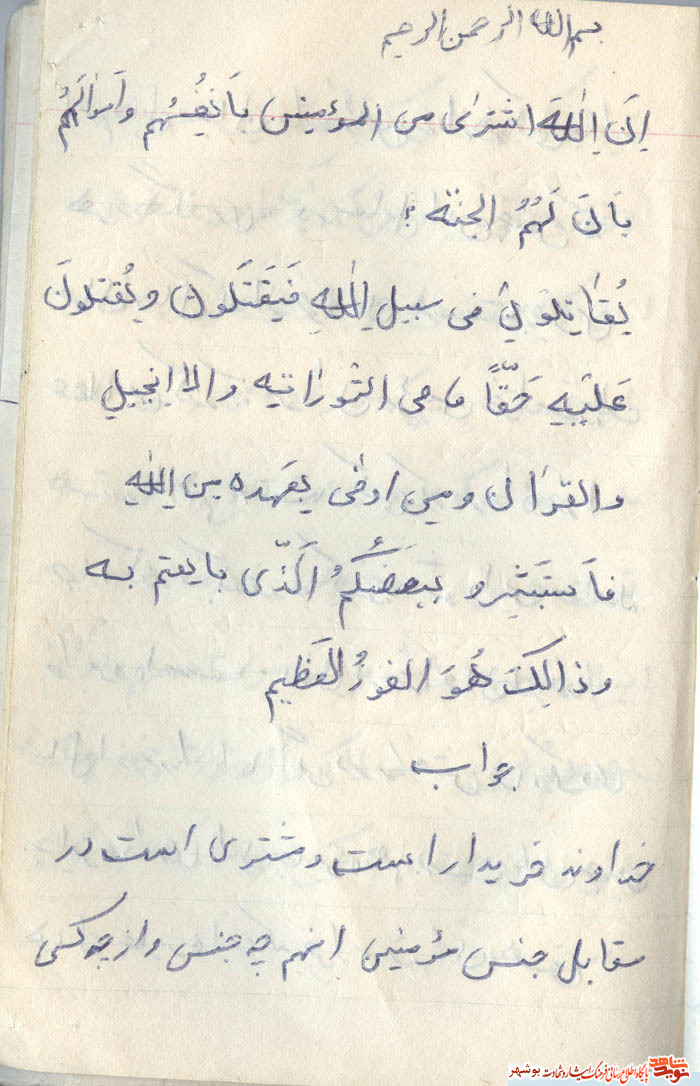 بسم الله الرحمن الرحیم
اِنَ اِللهَ اشترٰی من المؤمنین بِاَنفُسُهم و اَموٰالَهُم
بِاَنَ لَهُمُ الجنّة :
یُقٰاتِلوُنَ فی سبیل اِللهِ فَیَقتَلُون و یُقتلونَ
عَلَیهِ حَقّاً ما فی التورٰاتیه والا اِنجیلِ
والقرٰان و مین اوفٰی بِعَهده مِن اِللهِ
فاَستَبَشِرو ببعَضُکُمُ اَلَذّی بایعتم به
وذالِکَ هُوَ الفوزُ لعَظیم
جواب
خداوند خریدار است و مشتری است در
مقابل جنس مؤمنین انهم چه جنس و از چه کسی
نوید شاهد
پایگاه اطلاع رسانی فرهنگ ایثار و شهادت بوشهر